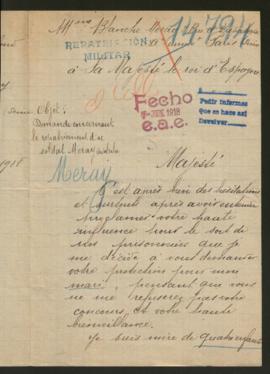 Mme Blanche Meray
14.724
REPATRIACIÓN
MILITAR
Paris
à Sa Majesté le roi d'Espagne
Objet:
Demande concernant
le rapatriement d'un
soldat Meray
Fecho
JUN. 1918
e.a.e.
Pedir informes
que se hace así
Devolver
Meray
Majesté
C'est après bien des hésitations
et surtout après avoir entendu
votre haute
pour le sort de
nos prisonniers que je
me décide à vous demander
votre protection pour mon
mari, pensant que vous
ne me refuserez pas votre
concours et votre haute
bienveillance.
Je suis mère de quatre enfants